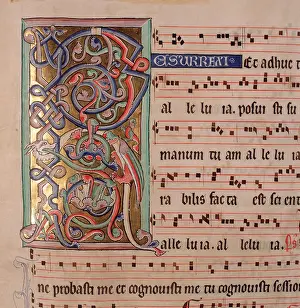 R
ESURREXI Et adhuc t
al le lu ia. posui sti su
manum tu am al le lu ia.
ra bilis facta est sci en
alle lu ia. al lelu ia.
ne probasti me et cognouisti me tu cognouisti sessio